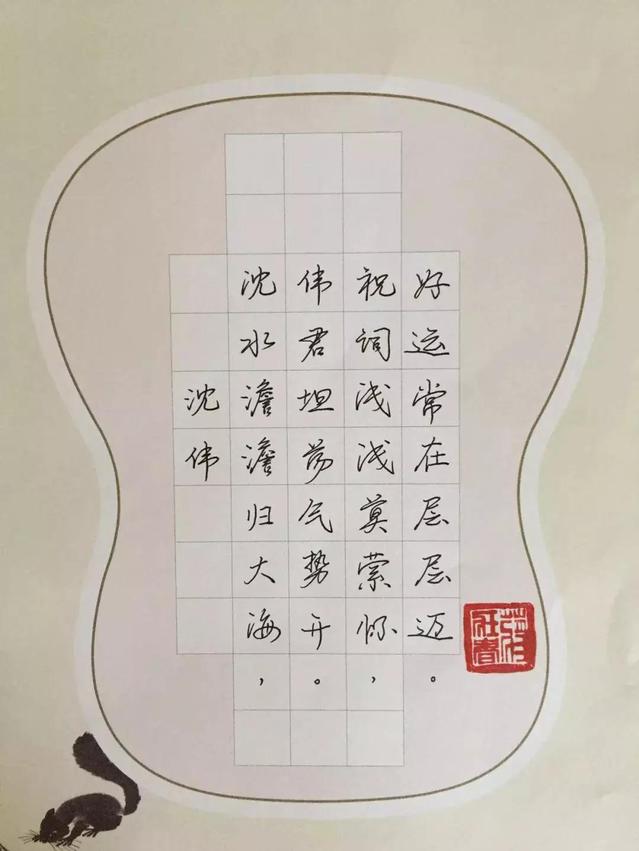 沈伟
沈水澹澹归大海，
伟君坦荡气势开。
祝词浅浅莫萦怀，
好运常在层层迈。